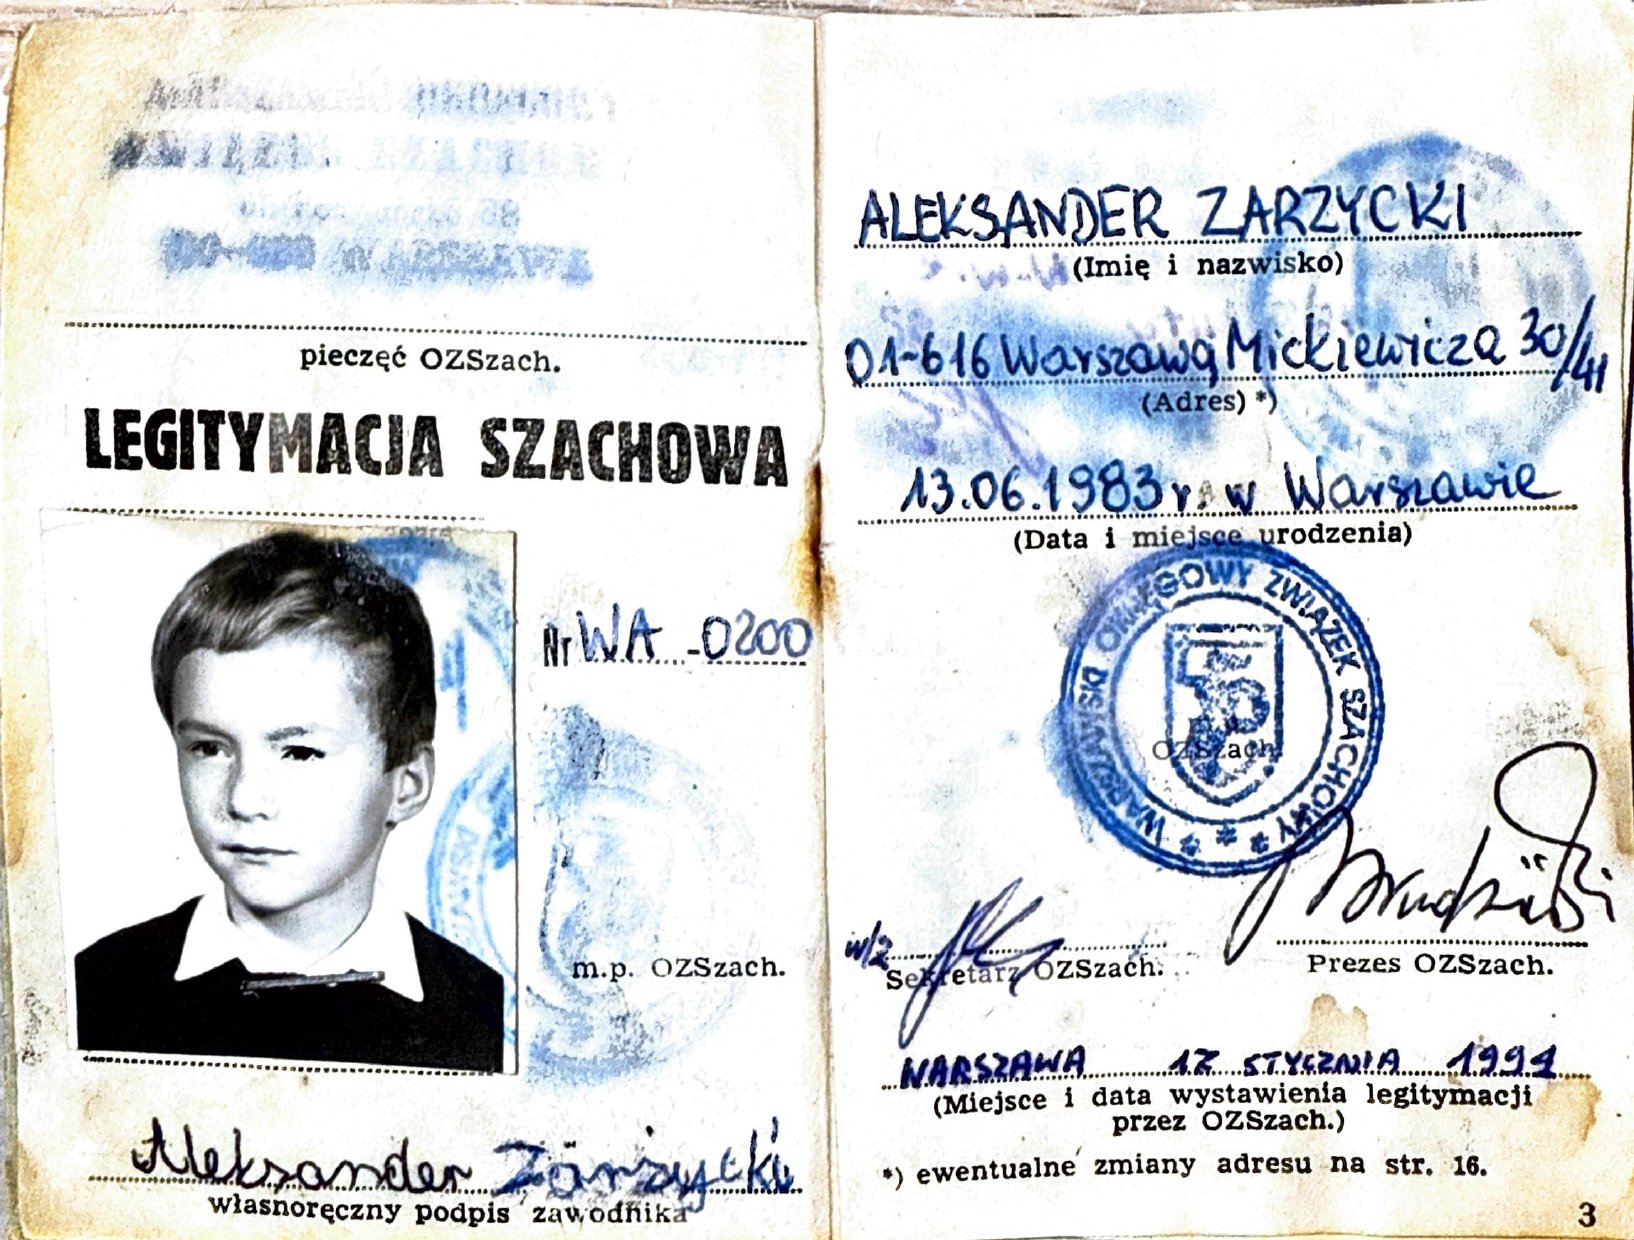 pieczęć OZSzach.
LEGITYMACJA SZACHOWA
Nr WA - 0200
m.p. OZSzach.
Aleksander Zarzycki
własnoręczny podpis zawodnika
ALEKSANDER ZARZYCKI
(Imię i nazwisko)
01-616 Warszawa, Mickiewicza 30/41
(Adres) *)
13.06.1983 r. w Warszawie
(Data i miejsce urodzenia)
WARSZAWSKI OKRĘGOWY ZWIĄZEK SZACHOWY
OZSzach.
w/z
Sekretarz OZSzach.
Prezes OZSzach.
WARSZAWA 17 STYCZNIA 1991
(Miejsce i data wystawienia legitymacji
przez OZSzach.)
*) ewentualne zmiany adresu na str. 16.
3